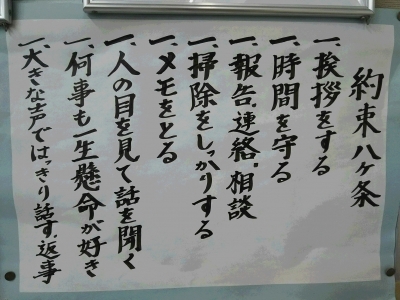 約束八ヶ条
一、挨拶をする
一、時間を守る
一、報告、連絡、相談
一、掃除をしっかりする
一、メモをとる
一、人の目を見て話を聞く
一、何事も一生懸命が好き
一、大きな声ではっきり話す、返事